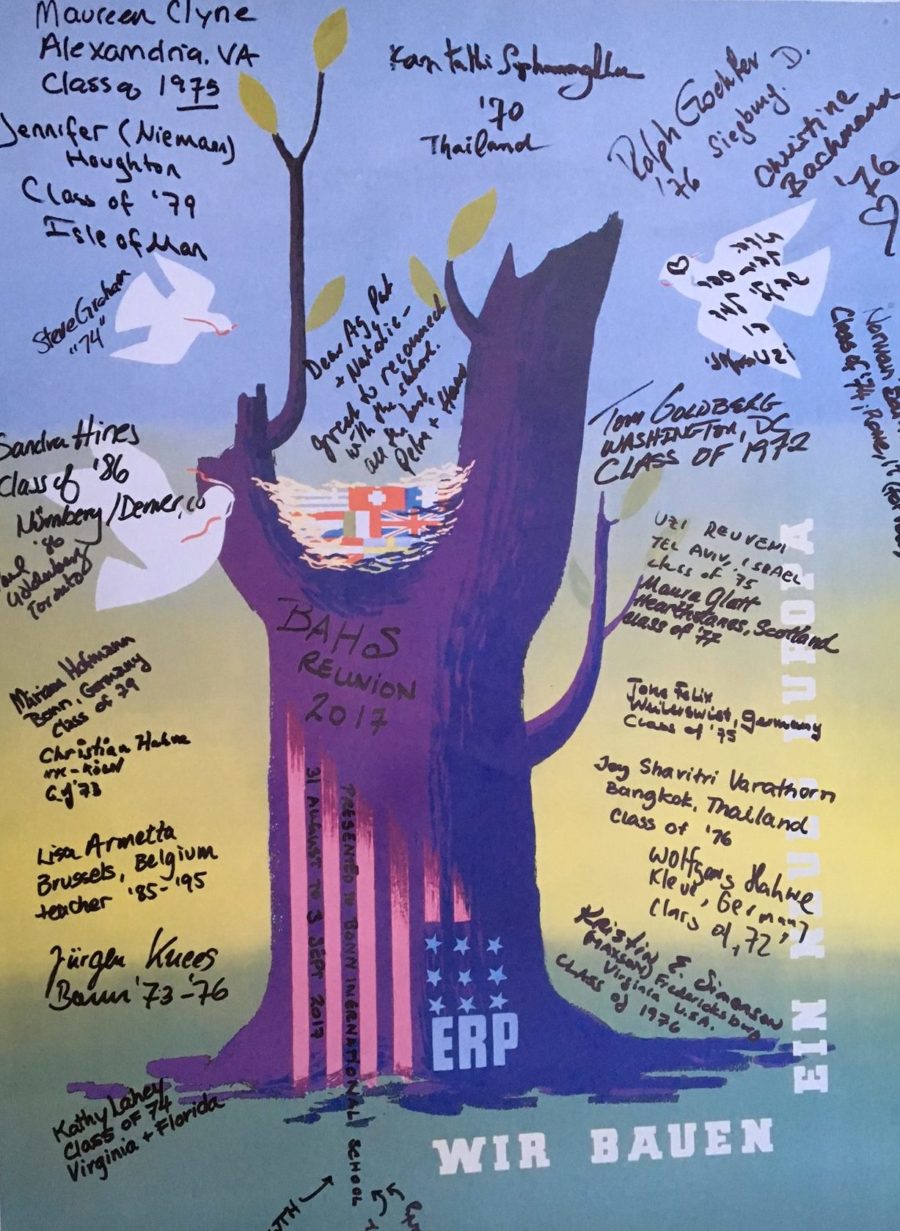 Maureen Clyne
Alexandria, VA
Class of 1975
Jennifer (Niemann)
Houghton
Class of '79
Isle of Man
Steve Graham
"74"
'70
Thailand
Ralph
'76 Siegburg. D.
Christine
Bachmann
'76
Dear Ag, Pat
+ Natalie -
great to reconnect
with the school.
all the best,
Petra + Hans
Tom GOLDBERG
WASHINGTON, DC
CLASS OF 1972
Norman
Class of '74, Rome, It
Sandra Hines
Class of '86
Nürnberg/Denver, CO
'86
Goldenberg
Toronto
UZI REUVENI
TEL AVIV, ISRAEL
class of 75
Maura Glatt
Scotland
class of '77
BAHS
REUNION
2017
Miriam Hofmann
Bonn, Germany
class of 79
Christian Hahne
'73
Felix
Weilerswist, Germany
Class of '75
Joy Shavitri Varathorn
Bangkok, Thailand
Class of '76
Wolfgang Hahne
Germany
Class of '72
Lisa Armetta
Brussels, Belgium
teacher '85-'95
Jürgen Knees
Bonn '73-'76
Kristin E. Simonson
(MAXSON) Fredericksburg
Virginia U.S.A.
CLASS OF 1976
PRESENTED TO BONN INERNATIONAL SCHOOL
31 AUGUST TO 3 SEPT 2017
ERP
Kathy Lahey
Class of 74
Virginia + Florida
WIR BAUEN
EIN NEUES EUROPA